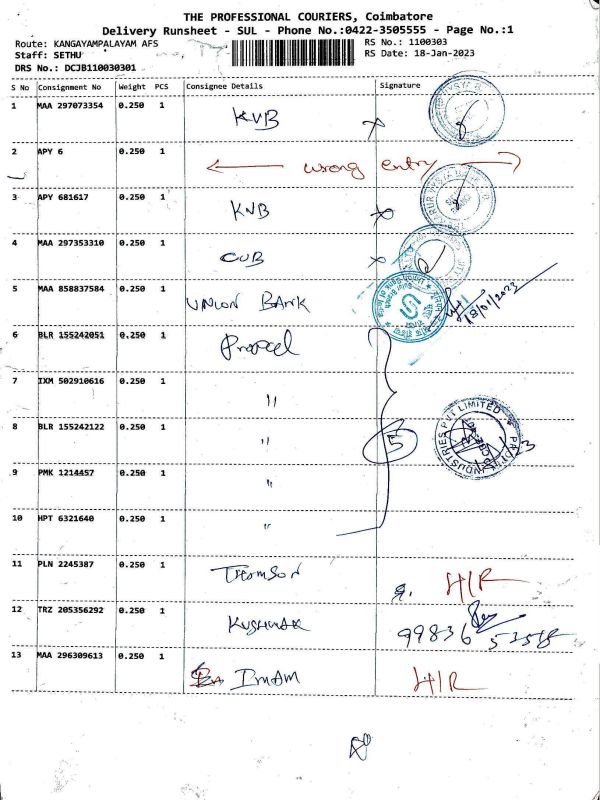 THE PROFESSIONAL COURIERS, Coimbatore
Delivery Runsheet - SUL - Phone No.:0422-3505555 - Page No.:1
Route: KANGAYAMPALAYAM AFS
RS No.: 1100303
Staff: SETHU
RS Date: 18-Jan-2023
DRS No.: DCJB110030301
S No Consignment No Weight PCS Consignee Details Signature
1 MAA 297073354 0.250 1 KVB
2 APY 6 0.250 1 wrong entry
3 APY 681617 0.250 1 KVB
4 MAA 297353310 0.250 1 CUB
5 MAA 858837584 0.250 1 UNION BANK 18/01/2023
6 BLR 155242051 0.250 1 Propel
7 IXM 502910616 0.250 1 "
8 BLR 155242122 0.250 1 " 5 INDUSTRIES PVT LIMITED
9 PMK 1214457 0.250 1 "
10 HPT 6321640 0.250 1 "
11 PLN 2245387 0.250 1 Thomson H/R
12 TRZ 205356292 0.250 1 99836
13 MAA 296309613 0.250 1 IMAM H/R